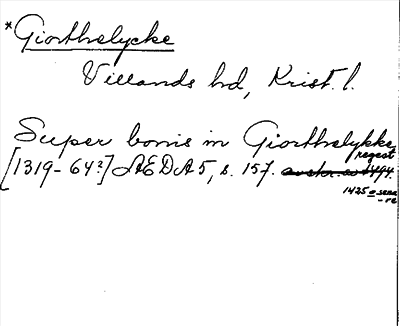 *Giorthslycke
Villands hd, Krist. l.
Super bonis in Giorthslykke
regest
[1319-64?] ÆDA 5, s. 157. avskr. 1494.
1425 o sena
-re